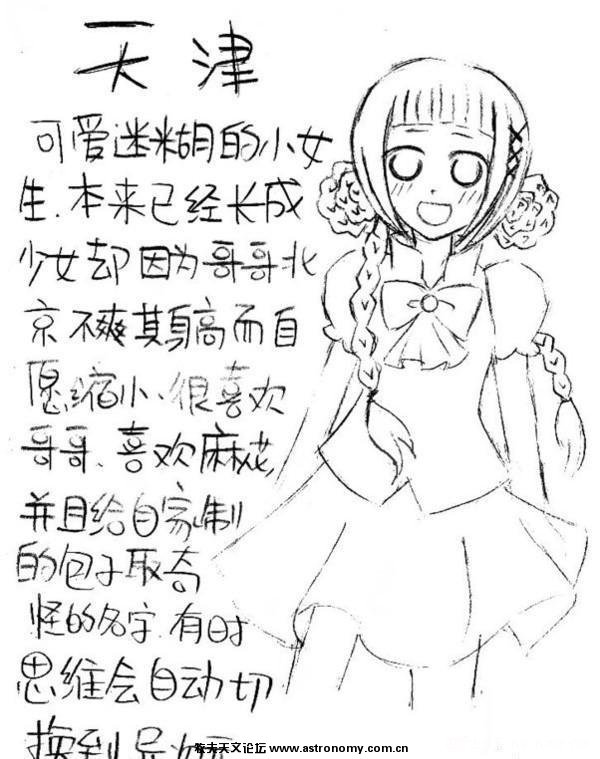 天津
可爱迷糊的小女
生.本来已经长成
少女却因为哥哥北
京不爽其身高而自
愿缩小、很喜欢
哥哥、喜欢麻花,
并且给自家制
的包子取奇
怪的名字.有时
思维会自动切
换到
牧夫天文论坛 www.astronomy.com.cn